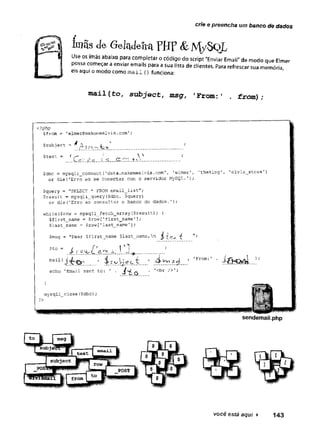 crie e preencha um banco de dados
Ímãs de Geladeira PHP & MySQL
Use os ímãs abaixo para completar o código do script "Enviar Email" de modo que Elmer
possa começar a enviar emails para a sua lista de clientes. Para refrescar sua memória,
eis aqui o modo como mail() funciona:
mail(to, subject, msg, 'From:' . from);
<?php
$from = 'elmer@makemeelvis.com';
$subject =
$text =
$dbc = mysqli_connect('data.makemeelvis.com', 'elmer', 'theking', 'elvis_store')
or die('Erro ao se conectar com o servidor MySQL.');
$query = "SELECT * FROM email_list";
$result = mysqli_query($dbc, $query)
or die('Erro ao consultar o banco de dados.');
while($row = mysqli_fetch_array($result)) {
$first_name = $row['first_name'];
$last_name = $row['last_name'];
$msg = "Dear $first_name $last_name,\n $text ";
$to =
mail( , , , 'From:' . );
echo 'Email sent to: ' . $to . '<br />';
}
mysqli_close($dbc);
?>
sendemail.php
to
msg
subject
text
email
subject
row
_POST
_POST
from
to
$
$
$
$
$
$
$
$
'
'
[
]
você está aqui ▸ 143